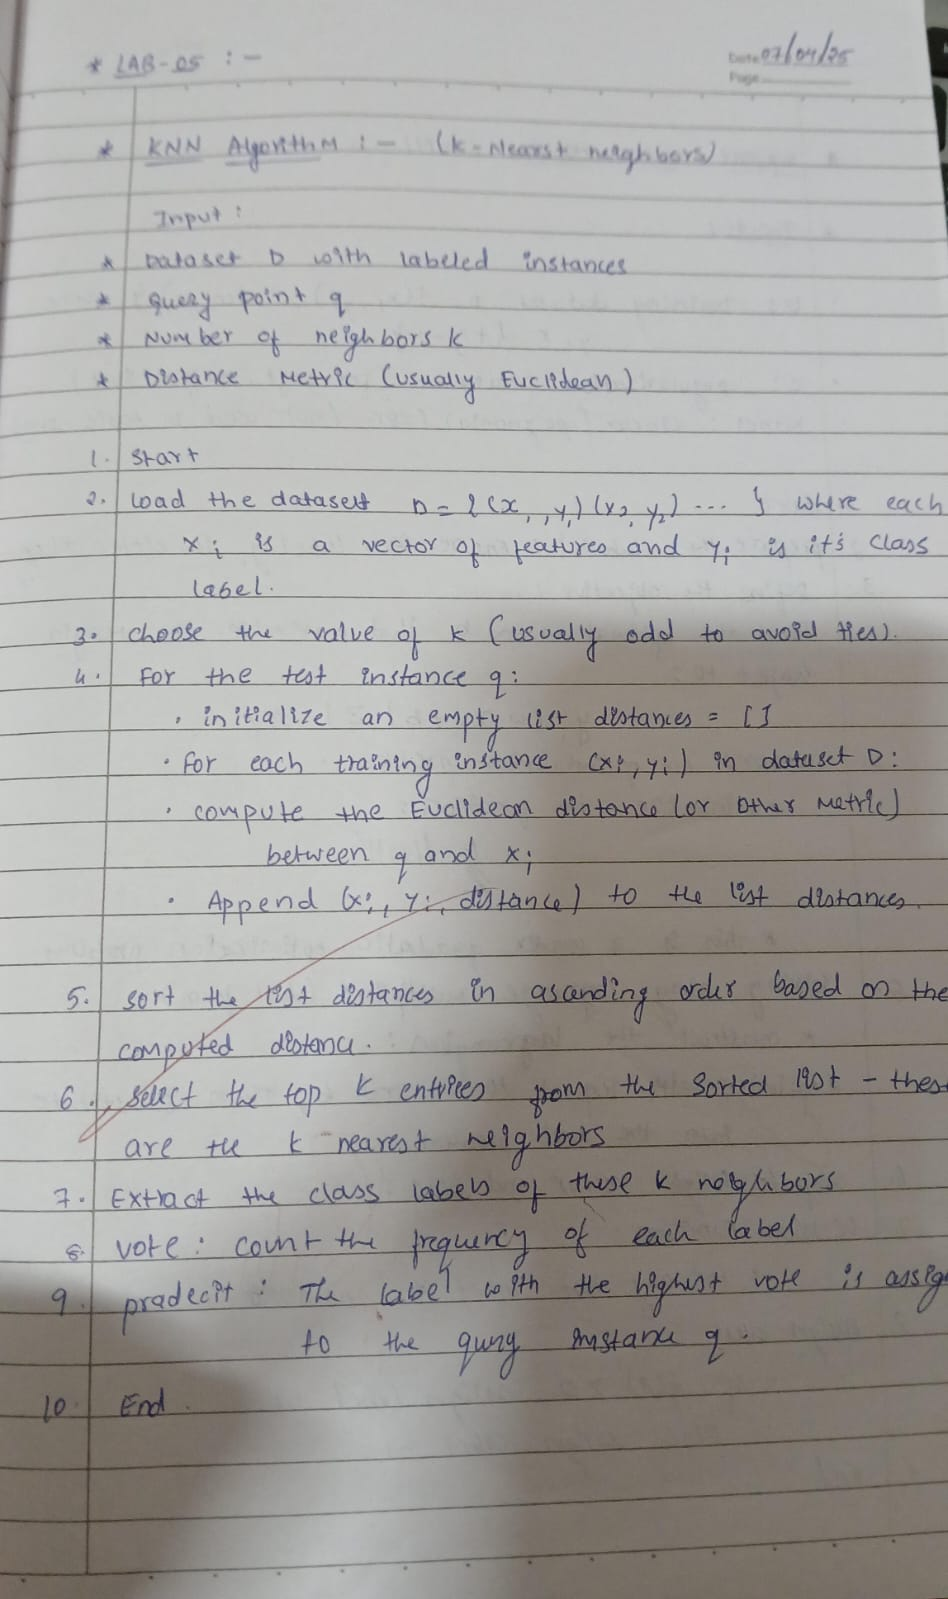 * LAB-05 :-
Date 07/04/25
Page
* KNN Algorithm :- (k-Nearst neighbors)
Input :
* Dataset D with labeled instances
* Query point q
* Number of neighbors k
* Distance Metric (usually Euclidean)
1. Start
2. Load the datasett D = {(x₁, y₁) (x₂, y₂) ... } where each
xᵢ is a vector of features and yᵢ is it's class
label.
3. choose the value of k (usually odd to avoid ties).
4. For the test instance q:
· initialize an empty list distances = []
· for each training instance (xi, yi) in dataset D:
· compute the Euclidean distance (or other Metric)
between q and xᵢ
· Append (xᵢ, yᵢ, distance) to the list distances.
5. sort the list distances in ascending order based on the
computed distance.
6. select the top k entries from the sorted list - thes
are the k nearest neighbors
7. Extract the class labels of these k neighbors
8. vote : count the frequency of each label
9. pradecit : The label with the highest vote is assig
to the query instance q.
10. End.